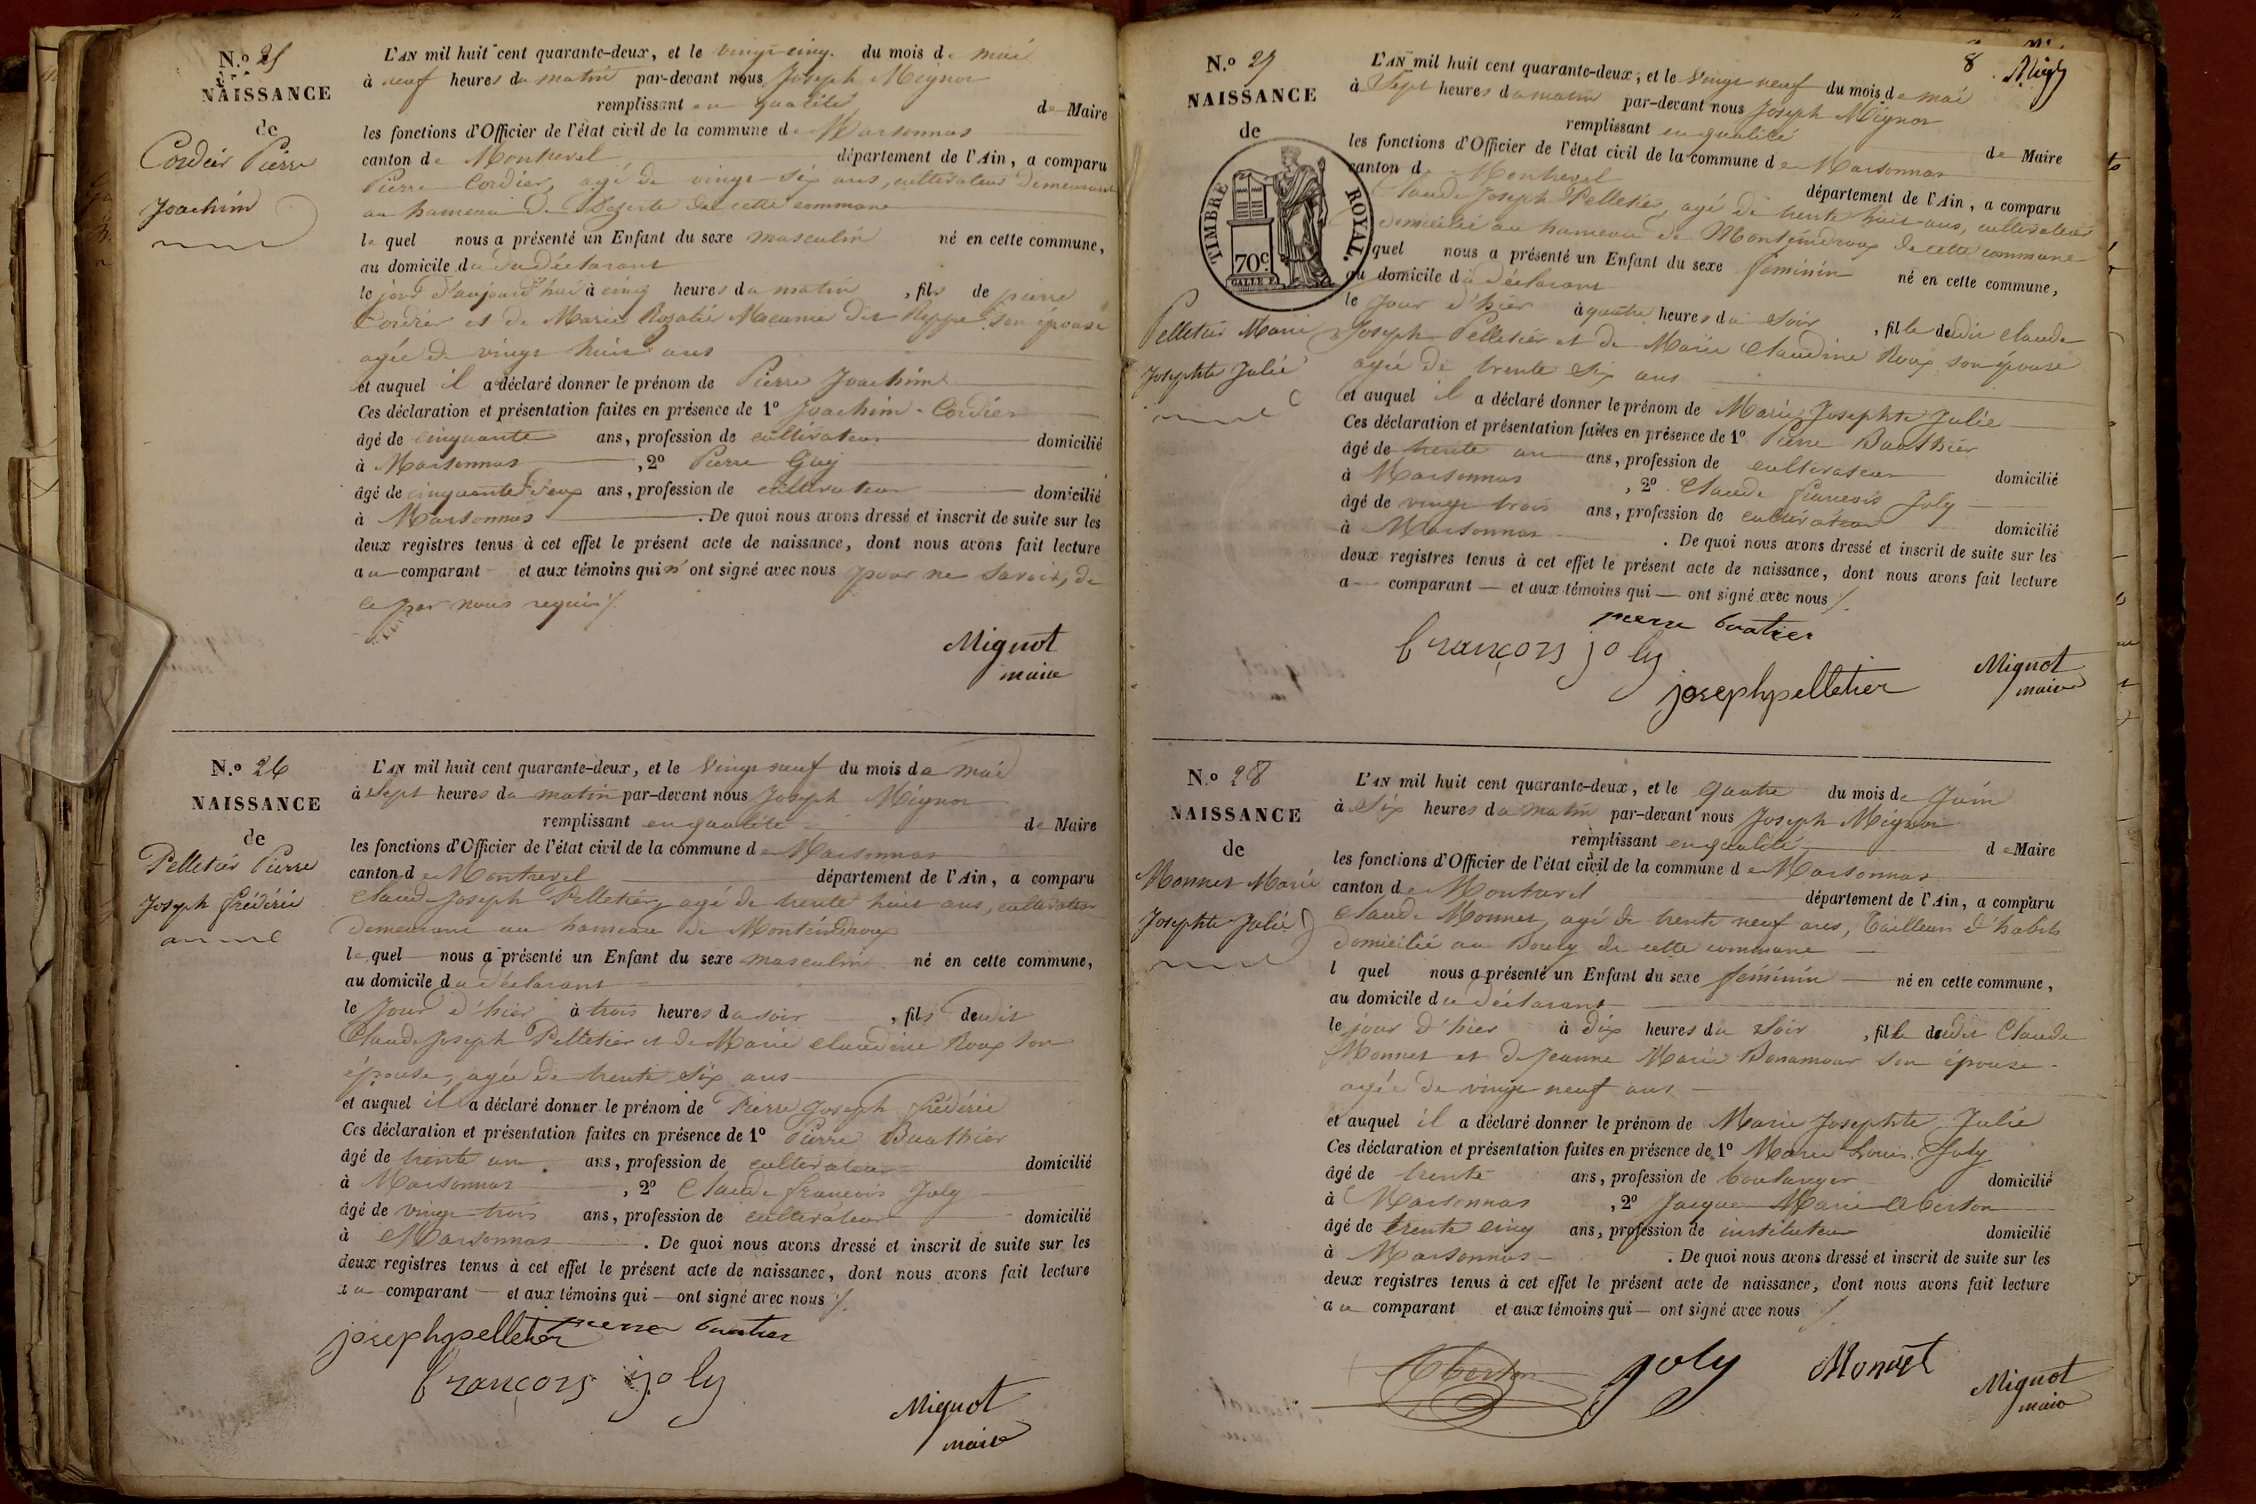 N.º 25
NAISSANCE
de
Cordier Pierre
Joachim
L'AN mil huit cent quarante-deux, et le vingt cinq du mois de mai
à neuf heures du matin par-devant nous Joseph Mignot
remplissant en qualité de Maire
les fonctions d'Officier de l'état civil de la commune de Marsonnas
canton de Montrevel département de l'Ain, a comparu
Pierre Cordier, agé de vingt six ans, cultivateur demeurant
au hameau de de cette commune
le quel nous a présenté un Enfant du sexe masculin né en cette commune,
au domicile du déclarant
le jour d'aujourd'hui à cinq heures du matin, fils de pierre
Cordier et de Marie Rozalie dit son épouse
agée de vingt huit ans
et auquel il a déclaré donner le prénom de Pierre Joachim
Ces déclaration et présentation faites en présence de 1º Joachim Cordier
âgé de cinquante ans, profession de cultivateur domicilié
à Marsonnas, 2º Pierre Guy
âgé de cinquante deux ans, profession de cultivateur domicilié
à Marsonnas. De quoi nous avons dressé et inscrit de suite sur les
deux registres tenus à cet effet le présent acte de naissance, dont nous avons fait lecture
au comparant et aux témoins qui n'ont signé avec nous pour ne savoir, de
ce par nous requis
Mignot
maire
N.º 26
NAISSANCE
de
Pelletier Pierre
Joseph Frédéric
L'AN mil huit cent quarante-deux, et le vingt neuf du mois de mai
à Sept heures du matin par-devant nous Joseph Mignot
remplissant en qualité de Maire
les fonctions d'Officier de l'état civil de la commune de Marsonnas
canton de Montrevel département de l'Ain, a comparu
Claude Joseph Pelletier, agé de trente huit ans, cultivateur
demeurant au hameau de Monteindroux
le quel nous a présenté un Enfant du sexe masculin né en cette commune,
au domicile du déclarant
le jour d'hier à trois heures du soir, fils dudit
Claude Joseph Pelletier et de Marie Claudine Roux son
épouse, agée de trente six ans
et auquel il a déclaré donner le prénom de Pierre Joseph frédéric
Ces déclaration et présentation faites en présence de 1º Pierre Buathier
âgé de trente un ans, profession de cultivateur domicilié
à Marsonnas, 2º Claude françois Joly
âgé de vingt trois ans, profession de cultivateur domicilié
à Marsonnas. De quoi nous avons dressé et inscrit de suite sur les
deux registres tenus à cet effet le présent acte de naissance, dont nous avons fait lecture
au comparant et aux témoins qui ont signé avec nous
joseph pelletier pierre buatier
françois joly
Mignot
maire
8
N.º 27
NAISSANCE
de
TIMBRE ROYAL.
70c
Pelletier Marie
Josephte Julie
L'AN mil huit cent quarante-deux, et le vingt neuf du mois de mai
à Sept heures du matin par-devant nous Joseph Mignot
remplissant en qualité de Maire
les fonctions d'Officier de l'état civil de la commune de Marsonnas
canton d Montrevel département de l'Ain, a comparu
Claude Joseph Pelletier, agé de trente huit ans, cultivateur
domicilié au hameau de Monteindroux de cette commune
quel nous a présenté un Enfant du sexe féminin né en cette commune,
au domicile du déclarant
le jour d'hier à quatre heures du soir, fille dudit Claude
Joseph Pelletier et de Marie Claudine Roux son épouse
agée de trente six ans
et auquel il a déclaré donner le prénom de Marie Josephte Julie
Ces déclaration et présentation faites en présence de 1º Pierre Buathier
âgé de trente un ans, profession de cultivateur domicilié
à Marsonnas, 2º Claude françois Joly
âgé de vingt trois ans, profession de cultivateur domicilié
à Marsonnas. De quoi nous avons dressé et inscrit de suite sur les
deux registres tenus à cet effet le présent acte de naissance, dont nous avons fait lecture
a comparant et aux témoins qui ont signé avec nous
pierre buatier
françois joly
joseph pelletier
Mignot
maire
N.º 28
NAISSANCE
de
Monnet Marie
Josephte Julie
L'AN mil huit cent quarante-deux, et le quatre du mois de Juin
à Six heures du matin par-devant nous Joseph Mignot
remplissant en qualité de Maire
les fonctions d'Officier de l'état civil de la commune de Marsonnas
canton de Montrevel département de l'Ain, a comparu
Claude Monnet, agé de trente neuf ans, Tailleur d'habits
domicilié au Bourg de cette commune
l quel nous a présenté un Enfant du sexe féminin né en cette commune,
au domicile du déclarant
le jour d'hier à dix heures du soir, fille dudit Claude
Monnet et de Jeanne Marie Bonamour son épouse
agée de vingt neuf ans
et auquel il a déclaré donner le prénom de Marie Josephte Julie
Ces déclaration et présentation faites en présence de 1º Marie Louis Joly
âgé de trente ans, profession de boulanger domicilié
à Marsonnas, 2º Jacques Marie Oberton
âgé de trente cinq ans, profession de instituteur domicilié
à Marsonnas. De quoi nous avons dressé et inscrit de suite sur les
deux registres tenus à cet effet le présent acte de naissance, dont nous avons fait lecture
au comparant et aux témoins qui ont signé avec nous
Joly Monnet
Mignot
maire